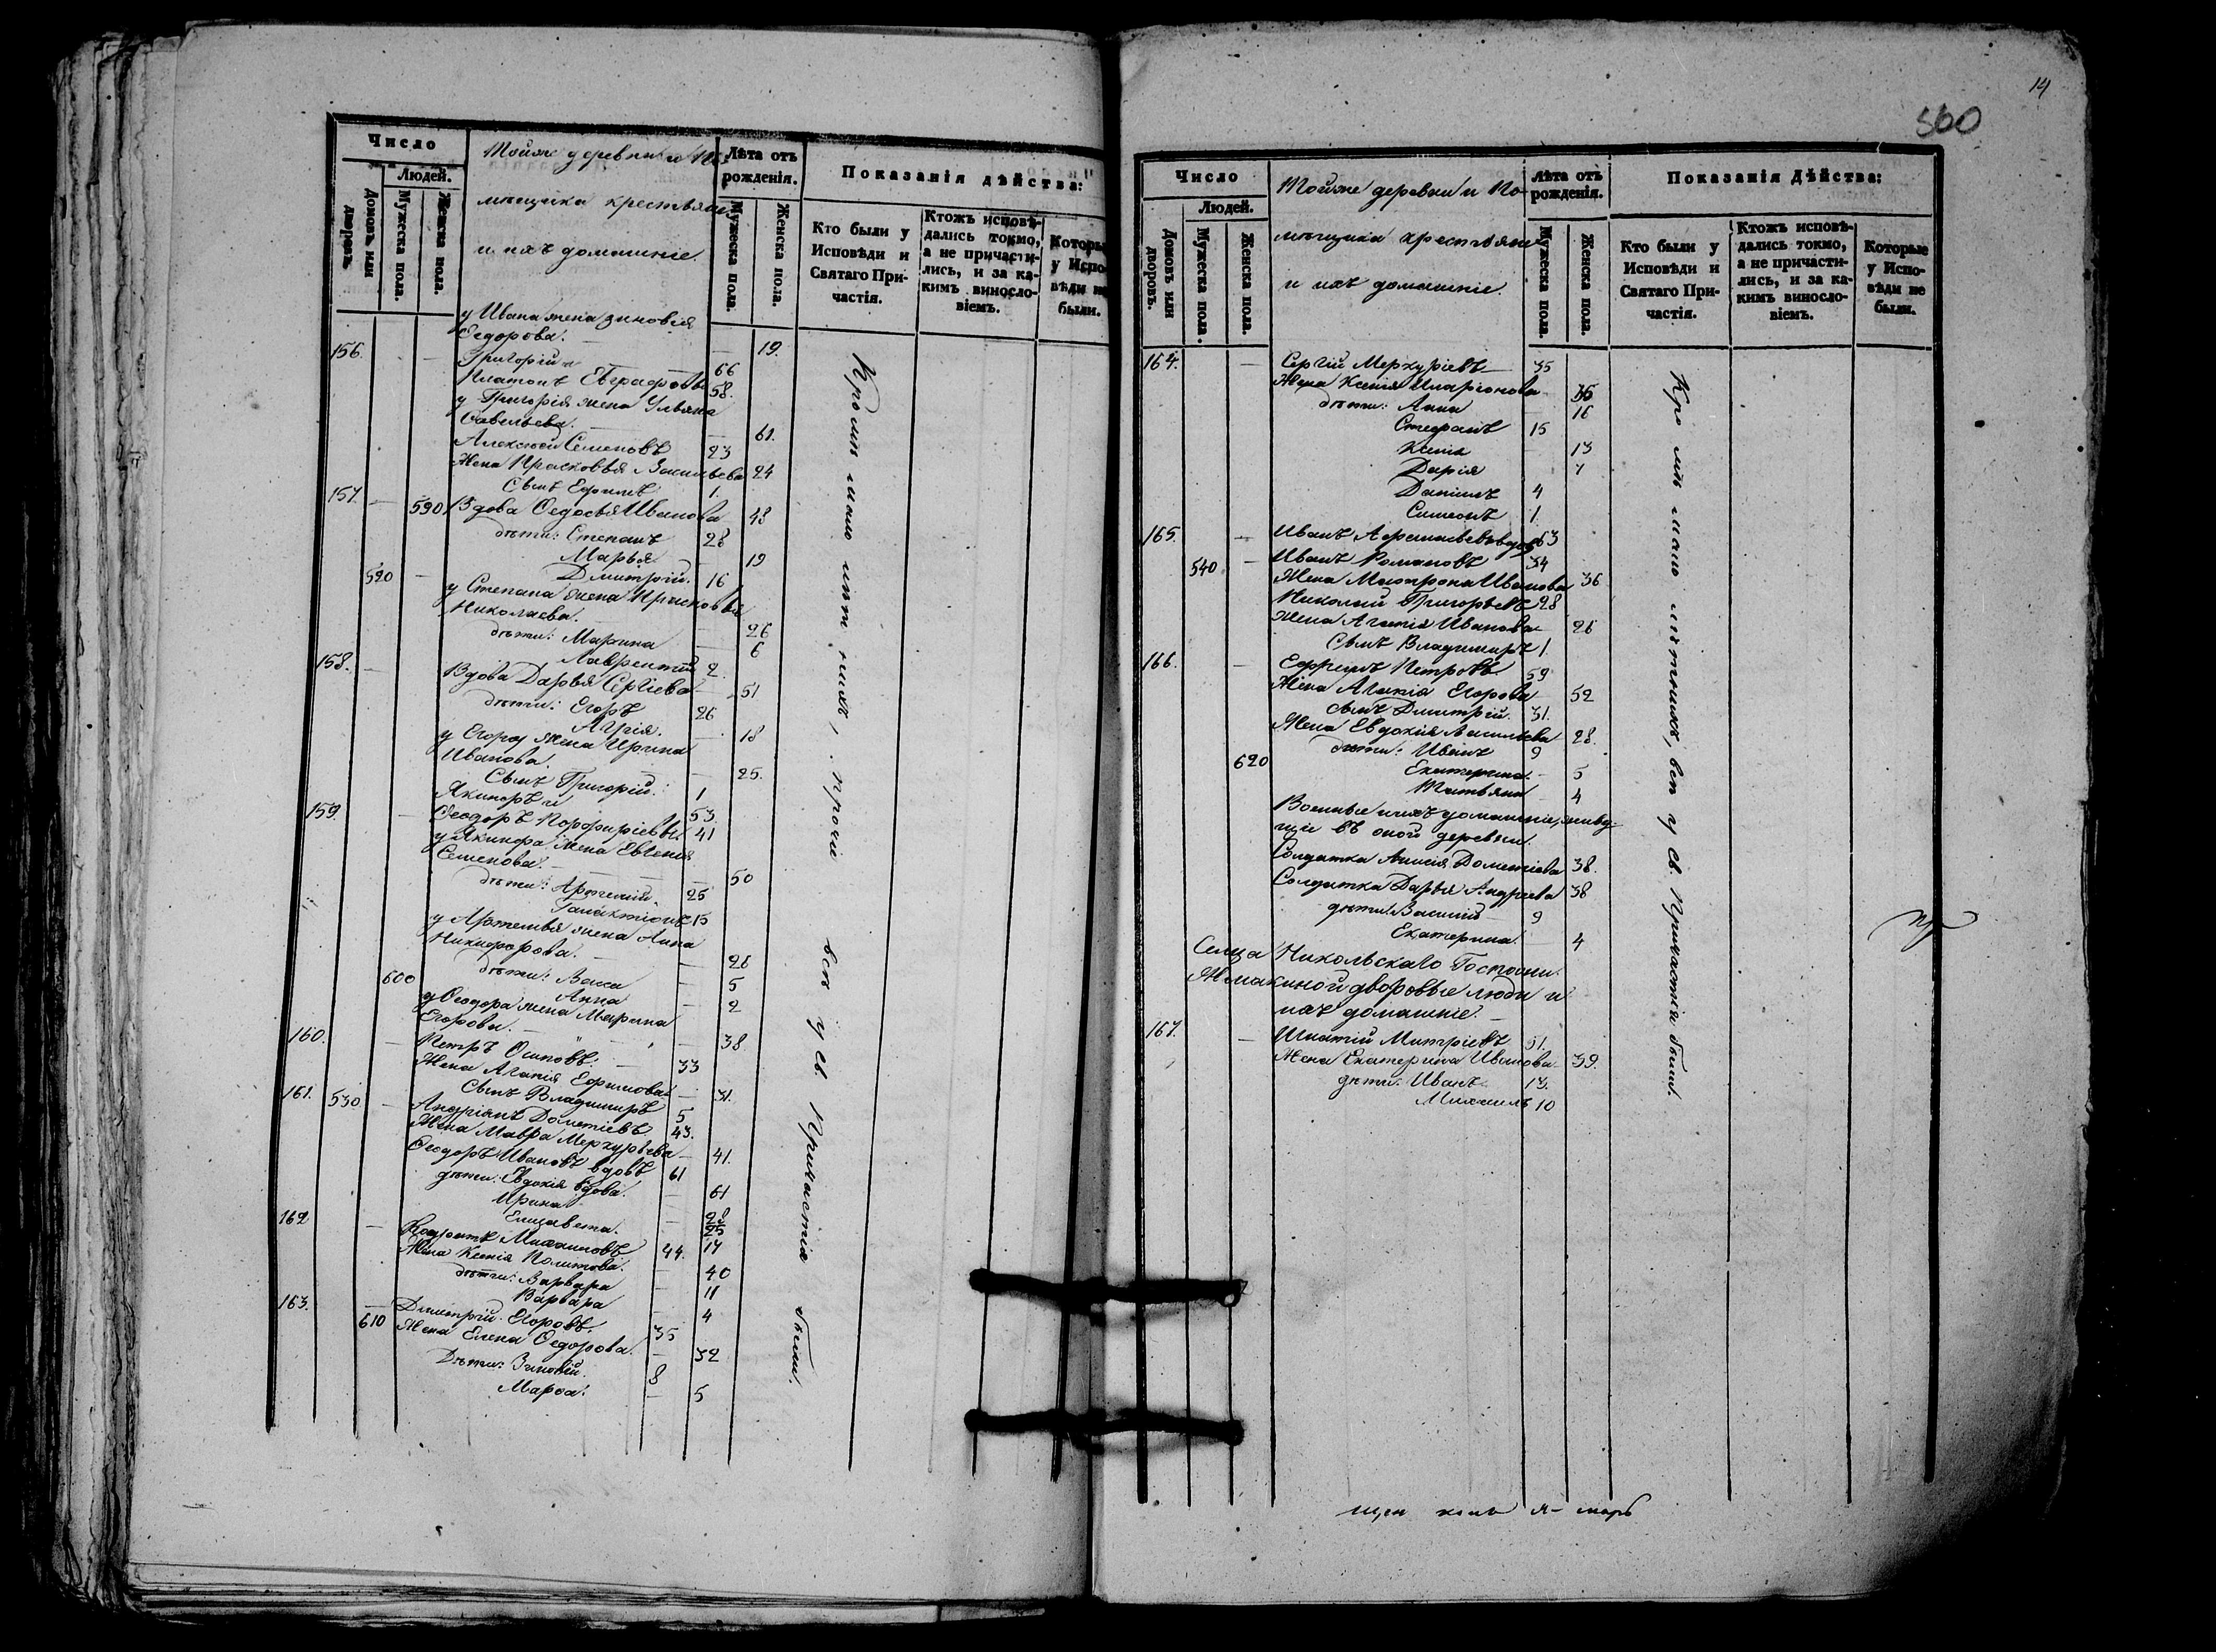 Число
Людей.
Домовъ или дворовъ.
Мужеска пола.
Женска пола.
Тойже деревни и По-
мѣщика крестьяне
и ихъ домашніе.
Лѣта отъ рожденія.
Мужеска пола.
Женска пола.
Показанія дѣйства:
Кто были у Исповѣди и Святаго Причастія.
Ктожъ исповѣдались токмо, а не причастились, и за какимъ винословіемъ.
Которые у Исповѣди не были.
у Ивана жена Зиновія
Ѳедорова. — — 19.
156. — Григорій и 66
Платонъ Евграфовы 58.
у Григорія жена Ульяна
Савельева. — — 61.
Алексѣй Семеновъ 23
Жена Прасковья Васильева 24
Сынъ Ефимъ 1.
157. — 590 Вдова Ѳедосья Иванова 48
дѣти: Степанъ 28
Марья — 19
520 — Дмитрій. 16
у Степана жена Прасковья
Николаева. — 26
дѣти: Марина — 6
Лаврентій 2.
158. — Вдова Дарья Сергіева — 51
дѣти: Егоръ 26
— 18
у Егора жена Ирина
Иванова. — 25.
Сынъ Григорій. 1
159. — Якинфъ и 53.
Ѳеодоръ Порфиріевы 41
у Якинфа жена Евгенія
Семенова. — — 50
дѣти: Артемій 25
Галактіонъ 15
у Артемья жена Анна
Никифорова. — — 26
дѣти: Васса — 5
600 Анна — 2
у Ѳеодора жена Марина
Егорова. — — 38
160. — Петръ Осиповъ. — 33
Жена Агапія Ефимова — 31.
Сынъ Владимиръ 5
161. 530 — Андріянъ Дометіевъ 43.
Жена Мавра Меркурьева — 41.
Ѳеодоръ Ивановъ вдовъ 61
дѣти: Евдокія вдова. — 61
Ирина — 28
Елисавета. — 14
162 — Кодратъ Михаиловъ 44.
Жена Ксенія — 40
дѣти: Варвара — 11
Варвара — 4
163. — Димитрій Егоровъ. 35
610 Жена Елена Ѳедорова. — 32
Дѣти: Зиновій. 8
Марѳа. — 5
Кромѣ мало лѣт нихъ, прочіе всѣ у св. Причастія были.
14
560
Число
Людей.
Домовъ или дворовъ.
Мужеска пола.
Женска пола.
Тойже деревни и По-
мѣщика крестьяне
и ихъ домашніе.
Лѣта отъ рожденія.
Мужеска пола.
Женска пола.
Показанія дѣйства:
Кто были у Исповѣди и Святаго Причастія.
Ктожъ исповѣдались токмо, а не причастились, и за какимъ винословіемъ.
Которые у Исповѣди не были.
164. — Сергій Меркуріевъ — 35
Жена Ксенія Иларіонова 36
дѣти: Анна 16
Стефанъ 15
Ксенія — 13
Дарія 7
Даніилъ 4
Симеонъ 1.
165. — Иванъ вдовъ 63
540 — Иванъ Романовъ 34
Жена Матрона Иванова 36
Николай Григорьевъ 28
Жена Агапія Иванова 26
Сынъ Владимиръ 1.
166. — Ефремъ Петровъ 59
Жена Агапія Егорова 52
Сынъ Димитрій. 31.
Жена Евдокія Васильева 28.
дѣти: Иванъ 9
620 Екатерина. — 5
Татьяна — 4
Военные и ихъ домашніе, живу-
щіе въ оной деревни.
Солдатка Анисія Дометіева 38.
Солдатка Дарья Андреева 38
дѣти: Василій — 9
Екатерина. — 4
Сельца Никольскаго Госпожи
дворовые люди и
ихъ домашніе. —
167. — Игнатій Митріевъ 51.
Жена Екатерина Иванова 39.
дѣти: Иванъ 13.
Михаилъ 10
Кро мѣ мало лѣтнихъ, всѣ у св. Причастія были.